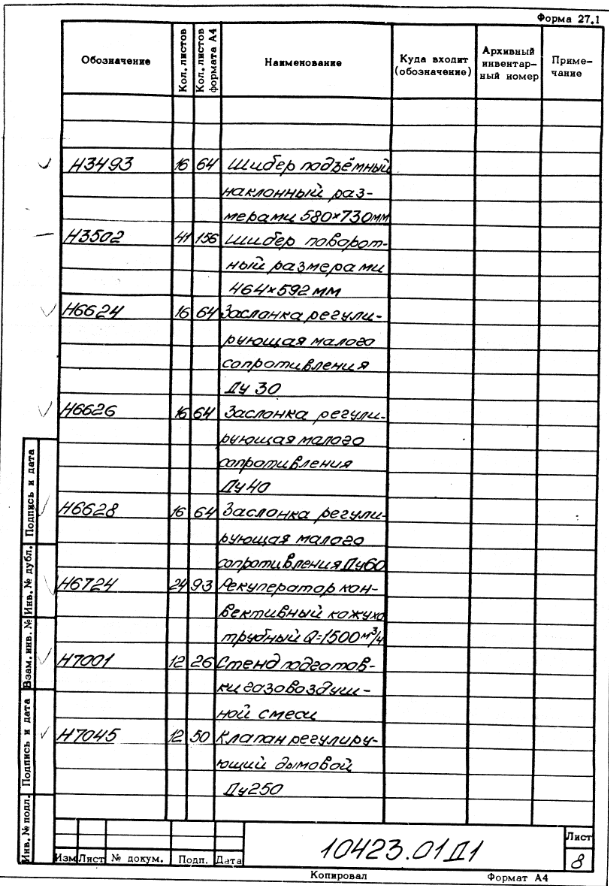 Форма 27.1
Обозначение
Кол. листов
Кол. листов формата А4
Наименование
Куда входит (обозначение)
Архивный инвентарный номер
Примечание
Н3493 16 64 Шибер подъёмный
наклонный раз-
мерами 580×730мм
Н3502 41 156 Шибер поворот-
ный размерами
464×592 мм
Н6624 16 64 Заслонка регули-
рующая малого
сопротивления
Ду 30
Н6626 16 64 Заслонка регули-
рующая малого
сопротивления
Ду 40
Н6628 16 64 Заслонка регули-
рующая малого
сопротивления Ду60
Н6724 24 93 Рекуператор кон-
вективный кожухо
трубный Q=1500 м³/ч
Н7001 12 26 Стенд подготов-
ки газовоздуш-
ной смеси
Н7045 12 50 Клапан регулиру-
ющий дымовой
Ду250
Инв. № подл.
Подпись и дата
Взам. инв. №
Инв. № дубл.
Подпись и дата
Изм Лист № докум. Подп. Дата
10423.01Д1
Лист
8
Копировал
Формат А4